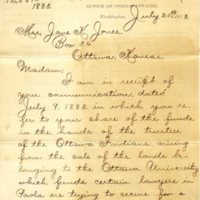 1888.
OFFICE OF INDIAN AFFAIRS,
Washington, July 20th 1888
Mrs. Jane K. Jones,
Box 34
Ottawa Kansas.
Madam;
I am in receipt of
your communication, dated
July 9, 1888 in which you re-
fer to your share of the funds
in the hands of the trustee
of the Ottawa Indians arising
from the sale of the lands be-
longing to the Ottawa University
which funds certain lawyers in
Paola are trying to secure for a